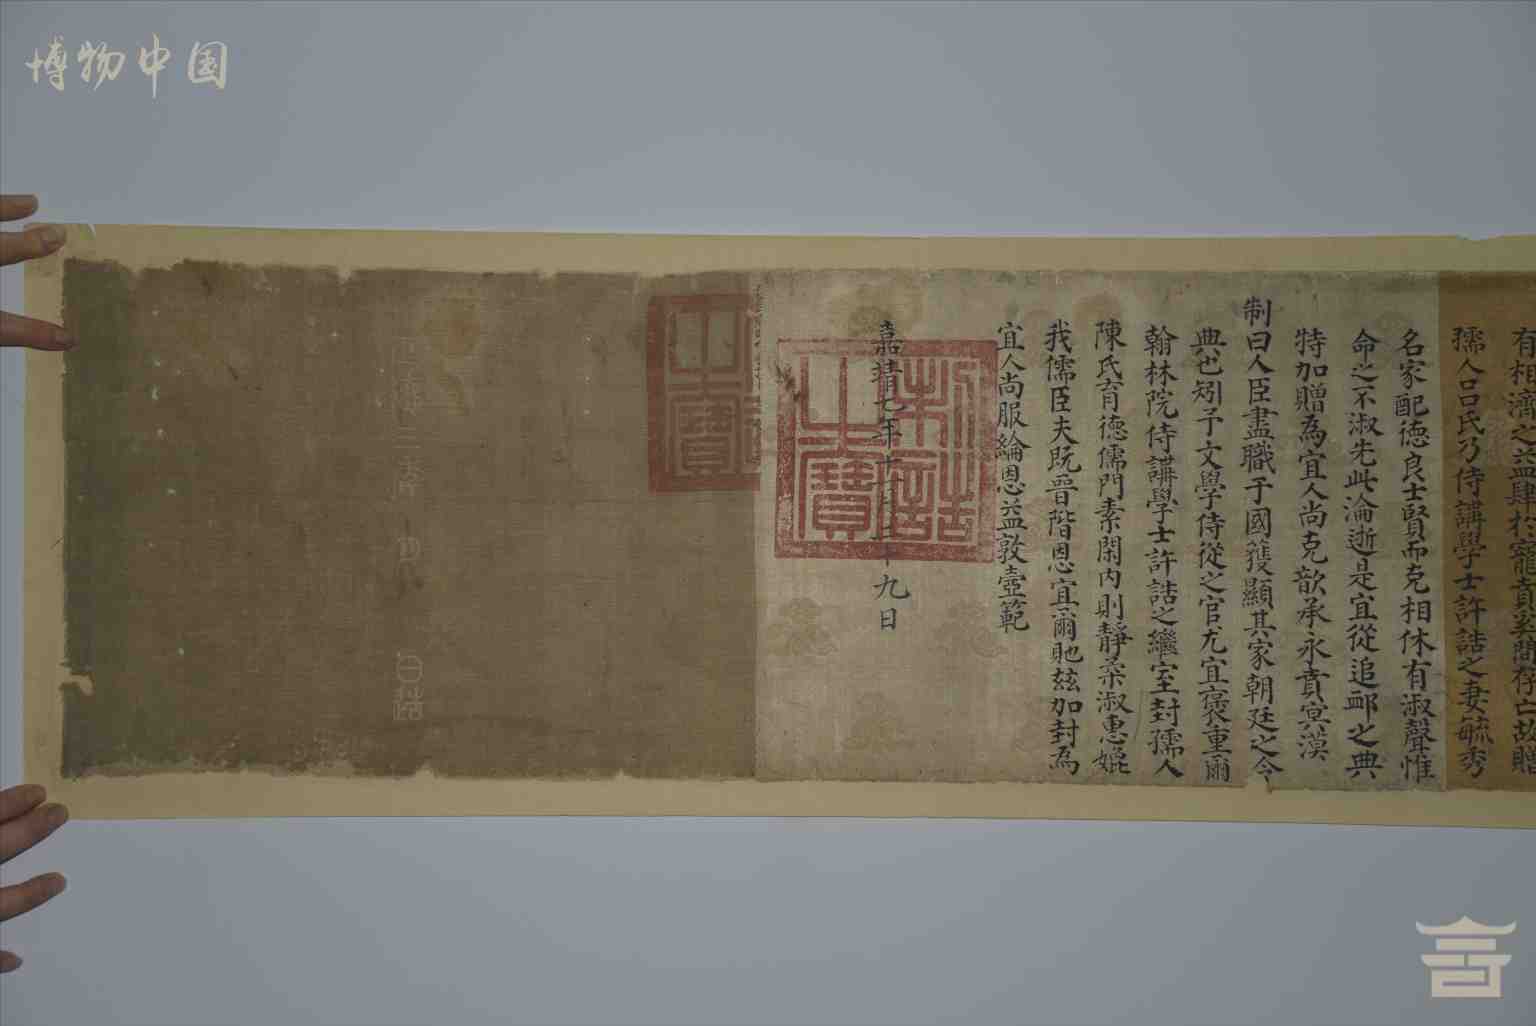 博物中国
有相濟之益肆朽寵賁奚間存亡故贈
孺人呂氏乃侍講學士許誥之妻毓秀
名家配德良士賢而克相休有淑聲惟
命之不淑先此淪逝是宜從追䘏之典
特加贈為宜人尚克歆承永賁冥漠
制曰人臣盡職于國獲顯其家朝廷之令
典也矧予文學侍從之官尤宜褒重爾
翰林院侍講學士許誥之繼室封孺人
陳氏育德儒門素閑內則靜柔淑惠媲
我儒臣夫既晉階恩宜爾貤玆加封為
宜人尚服綸恩益敦壼範
嘉靖七年十一月二十九日
制誥之寶
之寶
日誥